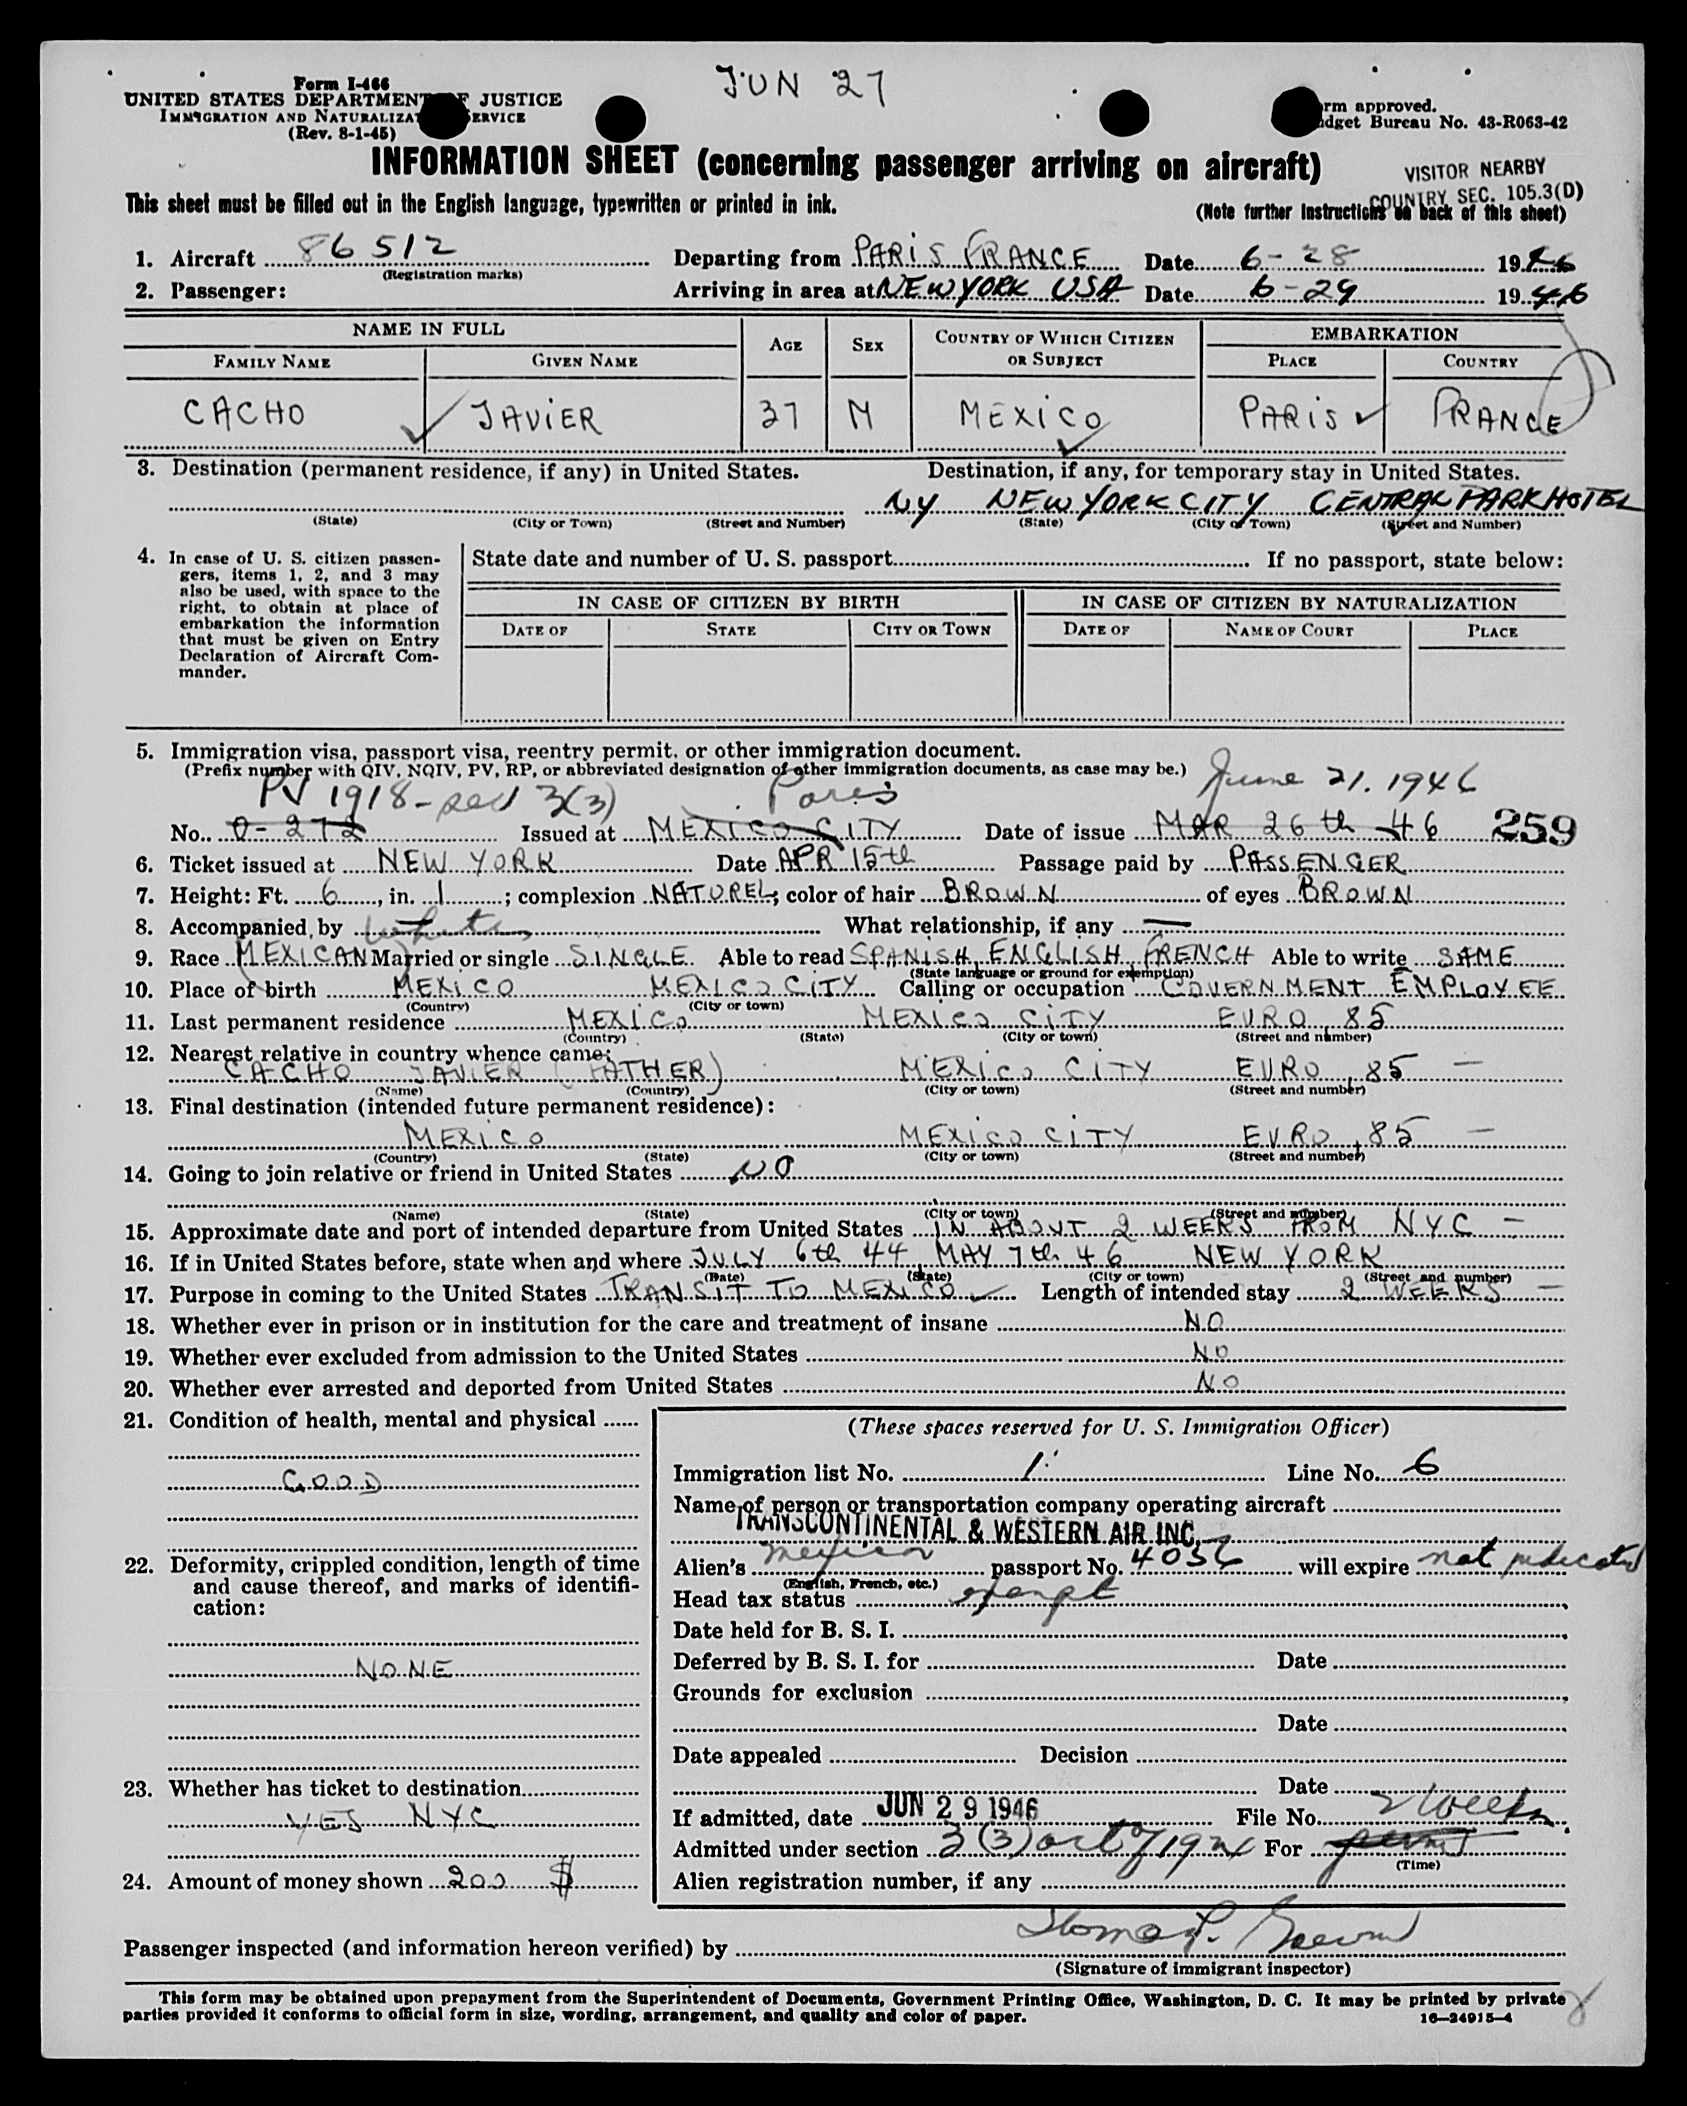 JUN 27
Form I-466
UNITED STATES DEPARTMENT OF JUSTICE
IMMIGRATION AND NATURALIZATION SERVICE
(Rev. 8-1-45)
Form approved.
Budget Bureau No. 43-R063-42
INFORMATION SHEET (concerning passenger arriving on aircraft)
VISITOR NEARBY
COUNTRY SEC. 105.3(D)
This sheet must be filled out in the English language, typewritten or printed in ink.
(Note further instructions on back of this sheet)
1. Aircraft 86512 Departing from PARIS FRANCE Date 6-28 1946
(Registration marks)
2. Passenger: Arriving in area at NEW YORK USA Date 6-29 1946
NAME IN FULL AGE SEX COUNTRY OF WHICH CITIZEN OR SUBJECT EMBARKATION
FAMILY NAME GIVEN NAME PLACE COUNTRY
CACHO JAVIER 37 M MEXICO PARIS FRANCE
3. Destination (permanent residence, if any) in United States. Destination, if any, for temporary stay in United States.
NY NEW YORK CITY CENTRAL PARK HOTEL
(State) (City or Town) (Street and Number) (State) (City or Town) (Street and Number)
4. In case of U. S. citizen passengers, items 1, 2, and 3 may also be used, with space to the right, to obtain at place of embarkation the information that must be given on Entry Declaration of Aircraft Commander.
State date and number of U. S. passport If no passport, state below:
IN CASE OF CITIZEN BY BIRTH IN CASE OF CITIZEN BY NATURALIZATION
DATE OF STATE CITY OR TOWN DATE OF NAME OF COURT PLACE
5. Immigration visa, passport visa, reentry permit, or other immigration document.
(Prefix number with QIV, NQIV, PV, RP, or abbreviated designation of other immigration documents, as case may be.)
PV 1918 - sec 3(3) Paris June 21. 1946
No. 0-272 Issued at MEXICO CITY Date of issue MAR 26th 46 259
6. Ticket issued at NEW YORK Date APR 15th Passage paid by PASSENGER
7. Height: Ft. 6, in. 1; complexion NATUREL; color of hair BROWN of eyes BROWN
8. Accompanied by — What relationship, if any —
white
9. Race (MEXICAN) Married or single SINGLE Able to read SPANISH, ENGLISH, FRENCH Able to write SAME
(State language or ground for exemption)
10. Place of birth MEXICO MEXICO CITY Calling or occupation GOVERNMENT EMPLOYEE
(Country) (City or town)
11. Last permanent residence MEXICO MEXICO CITY EURO, 85
(Country) (State) (City or town) (Street and number)
12. Nearest relative in country whence came:
CACHO JAVIER (FATHER) MEXICO CITY EURO, 85 —
(Name) (Country) (City or town) (Street and number)
13. Final destination (intended future permanent residence):
MEXICO MEXICO CITY EURO, 85 —
(Country) (State) (City or town) (Street and number)
14. Going to join relative or friend in United States NO
(Name) (State) (City or town) (Street and number)
15. Approximate date and port of intended departure from United States IN ABOUT 2 WEEKS FROM NYC —
16. If in United States before, state when and where JULY 6th 44, MAY 7th 46 NEW YORK
(Date) (State) (City or town) (Street and number)
17. Purpose in coming to the United States TRANSIT TO MEXICO Length of intended stay 2 WEEKS —
18. Whether ever in prison or in institution for the care and treatment of insane NO
19. Whether ever excluded from admission to the United States NO
20. Whether ever arrested and deported from United States NO
21. Condition of health, mental and physical
GOOD
22. Deformity, crippled condition, length of time and cause thereof, and marks of identification:
NONE
23. Whether has ticket to destination
YES NYC
24. Amount of money shown 200 $
(These spaces reserved for U. S. Immigration Officer)
Immigration list No. 1 Line No. 6
Name of person or transportation company operating aircraft
TRANSCONTINENTAL & WESTERN AIR INC.
Alien's Mexican passport No. 4036 will expire not indicated
(English, French, etc.)
Head tax status exempt
Date held for B. S. I.
Deferred by B. S. I. for Date
Grounds for exclusion
Date
Date appealed Decision
Date
If admitted, date JUN 29 1946 File No.
2 Weeks
Admitted under section 3(3) act of 1924 For
(Time)
Alien registration number, if any
Passenger inspected (and information hereon verified) by Thomas P.
(Signature of immigrant inspector)
This form may be obtained upon prepayment from the Superintendent of Documents, Government Printing Office, Washington, D. C. It may be printed by private
parties provided it conforms to official form in size, wording, arrangement, and quality and color of paper.
16—24915-4